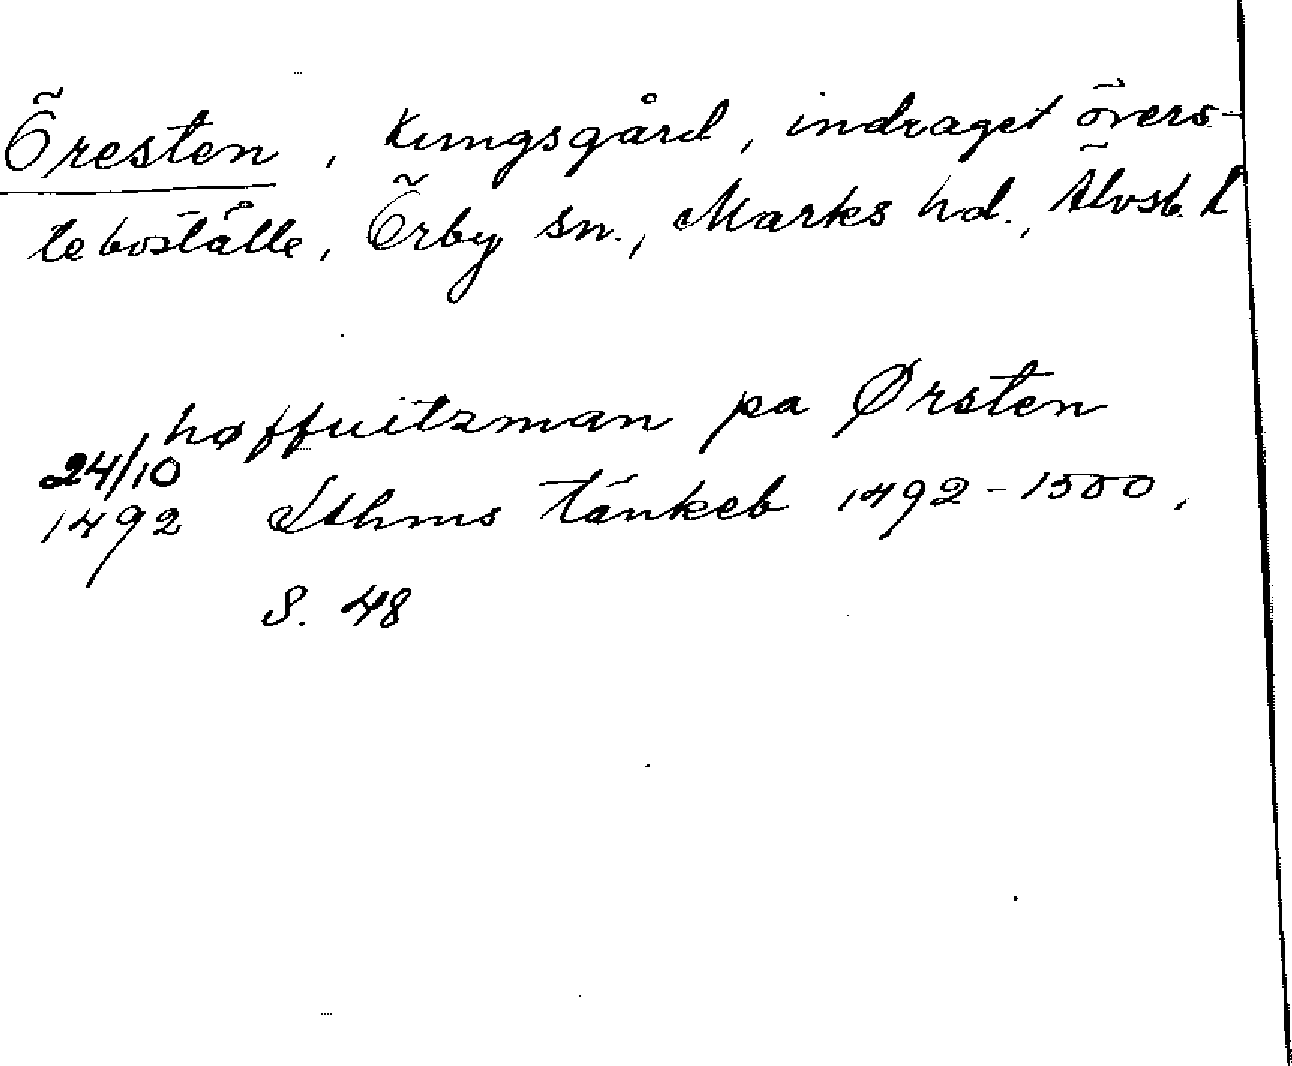 Öresten, kungsgård, indraget övers-
teboställe, Örby sn., Marks hd., Älvsb. L
høffuitzman pa Ørsten
24/10
1492 Sthms tänkeb 1492-1500,
S. 48